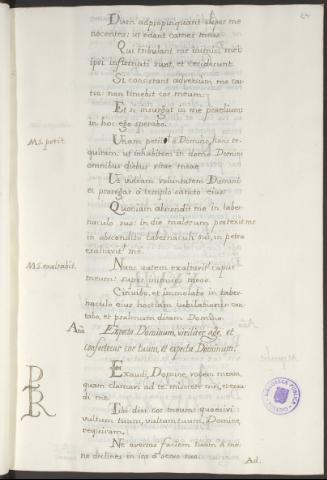 Dum appropinquant super me
nocentes: ut edant carnes meas.
Qui tribulant me inimici mei:
ipsi infirmati sunt, et ceciderunt.
Si consistant adversum me cas-
tra: non timebit cor meum.
Et si insurgat in me praelium:
in hoc ego sperabo.
M.S. petii. Unam petii à Domino, hanc re-
quiram: ut inhabitem in domo Domini
omnibus diebus vitae meae.
Ut videam voluntatem Domini:
et protegar à templo sancto eius.
Quoniam abscondit me in taber-
naculo suo: in die malorum protexit me
in abscondito tabernaculi sui, in petra
exaltavit me.
M.S. exaltabit. Nunc autem exaltavit caput
meum: super inimicos meos.
Circuibo, et immolabo in taber-
naculo eius hostiam iubilationis: can-
tabo, et psalmum dicam Domino.
Aña Expecta Dominum, viriliter age, et
confortetur cor tuum, et expecta Dominum.
PR Exaudi, Domine, vocem meam,
quam clamavi ad te: miserere mei, et exau-
di me.
Tibi dixi cor meum: quaesivi
vultum tuum, vultum tuum, Domine,
requiram.
Ne avertas faciem tuam à me:
ne declines in ira à servo tuo.
Ad.